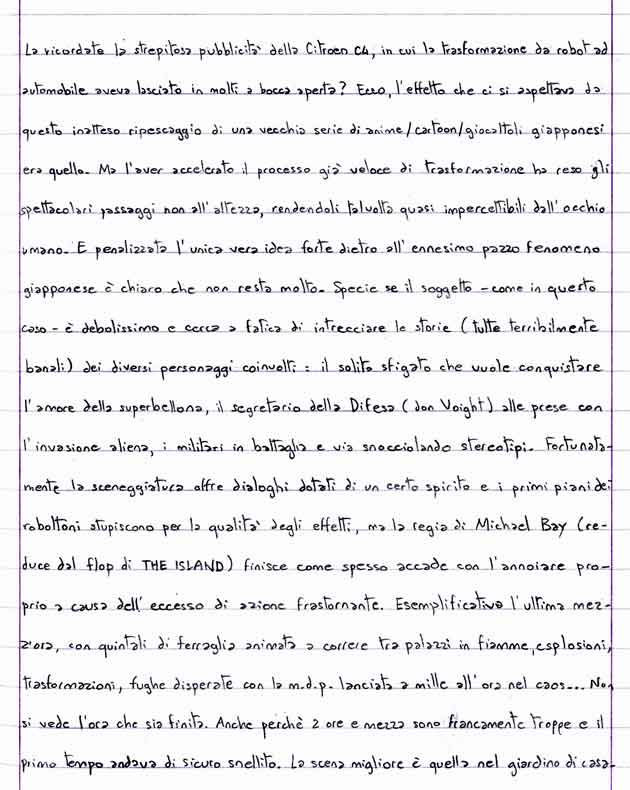 La ricordate la strepitosa pubblicita' della Citroen C4, in cui la trasformazione da robot ad
automobile aveva lasciato in molti a bocca aperta? Ecco, l'effetto che ci si aspettava da
questo inatteso ripescaggio di una vecchia serie di anime/cartoon/giocattoli giapponesi
era quello. Ma l'aver accelerato il processo già veloce di trasformazione ha reso gli
spettacolari passaggi non all'altezza, rendendoli talvolta quasi impercettibili dall'occhio
umano. E penalizzata l'unica vera idea forte dietro all'ennesimo pazzo fenomeno
giapponese è chiaro che non resta molto. Specie se il soggetto - come in questo
caso - è debolissimo e cerca a fatica di intrecciare le storie (tutte terribilmente
banali) dei diversi personaggi coinvolti: il solito sfigato che vuole conquistare
l'amore della superbellona, il segretario della Difesa (Jon Voight) alle prese con
l'invasione aliena, i militari in battaglia e via snocciolando stereotipi. Fortunata-
mente la sceneggiatura offre dialoghi dotati di un certo spirito e i primi piani dei
robottoni stupiscono per la qualita' degli effetti, ma la regia di Michael Bay (re-
duce dal flop di THE ISLAND) finisce come spesso accade con l'annoiare pro-
prio a causa dell'eccesso di azione frastornante. Esemplificativa l'ultima mez-
z'ora, con quintali di ferraglia animata a correre tra palazzi in fiamme, esplosioni,
trasformazioni, fughe disperate con la m.d.p. lanciata a mille all'ora nel caos... Non
si vede l'ora che sia finita. Anche perchè 2 ore e mezza sono francamente troppe e il
primo tempo andava di sicuro snellito. La scena migliore è quella nel giardino di casa